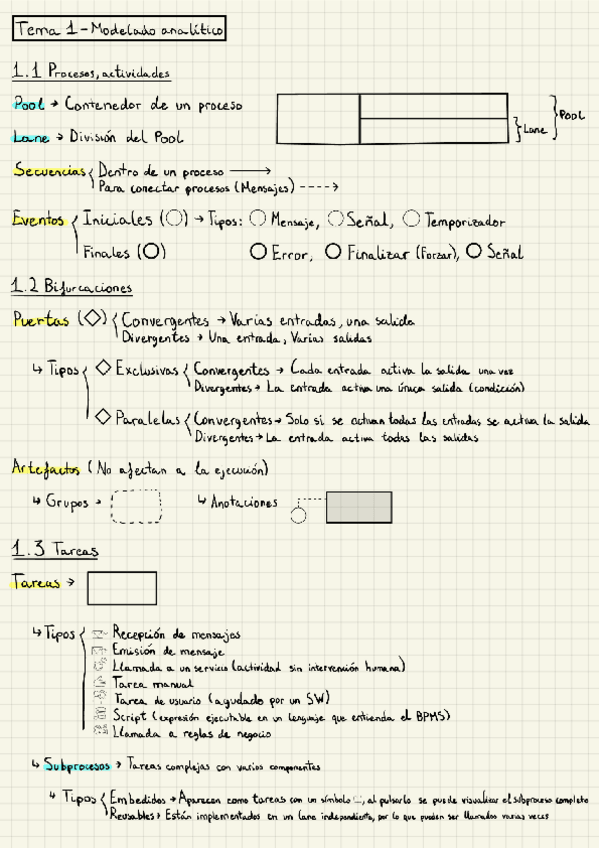 Tema 1 - Modelado analítico
1.1 Procesos, actividades
Pool → Contenedor de un proceso
Lane → División del Pool
Lane
Pool
Secuencias
Dentro de un proceso →
Para conectar procesos (Mensajes) ---->
Eventos
Iniciales (○) → Tipos: ○ Mensaje, ○ Señal, ○ Temporizador
Finales (○) ○ Error, ○ Finalizar (Forzar), ○ Señal
1.2 Bifurcaciones
Puertas (◇)
Convergentes → Varias entradas, una salida
Divergentes → Una entrada, Varias salidas
↳ Tipos
◇ Exclusivas
Convergentes → Cada entrada activa la salida una vez
Divergentes → La entrada activa una única salida (condición)
◇ Paralelas
Convergentes → Solo si se activan todas las entradas se activa la salida
Divergentes → La entrada activa todas las salidas
Artefactos (No afectan a la ejecución)
↳ Grupos → ↳ Anotaciones
1.3 Tareas
Tareas →
↳ Tipos
Recepción de mensajes
Emisión de mensaje
Llamada a un servicio (actividad sin intervención humana)
Tarea manual
Tarea de usuario (ayudado por un SW)
Script (expresión ejecutable en un lenguaje que entienda el BPMS)
Llamada a reglas de negocio
↳ Subprocesos → Tareas complejas con varios componentes
↳ Tipos
Embedidos → Aparecen como tareas con un símbolo, al pulsarlo se puede visualizar el subproceso completo
Reusables → Están implementados en un lane independiente, por lo que pueden ser llamados varias veces